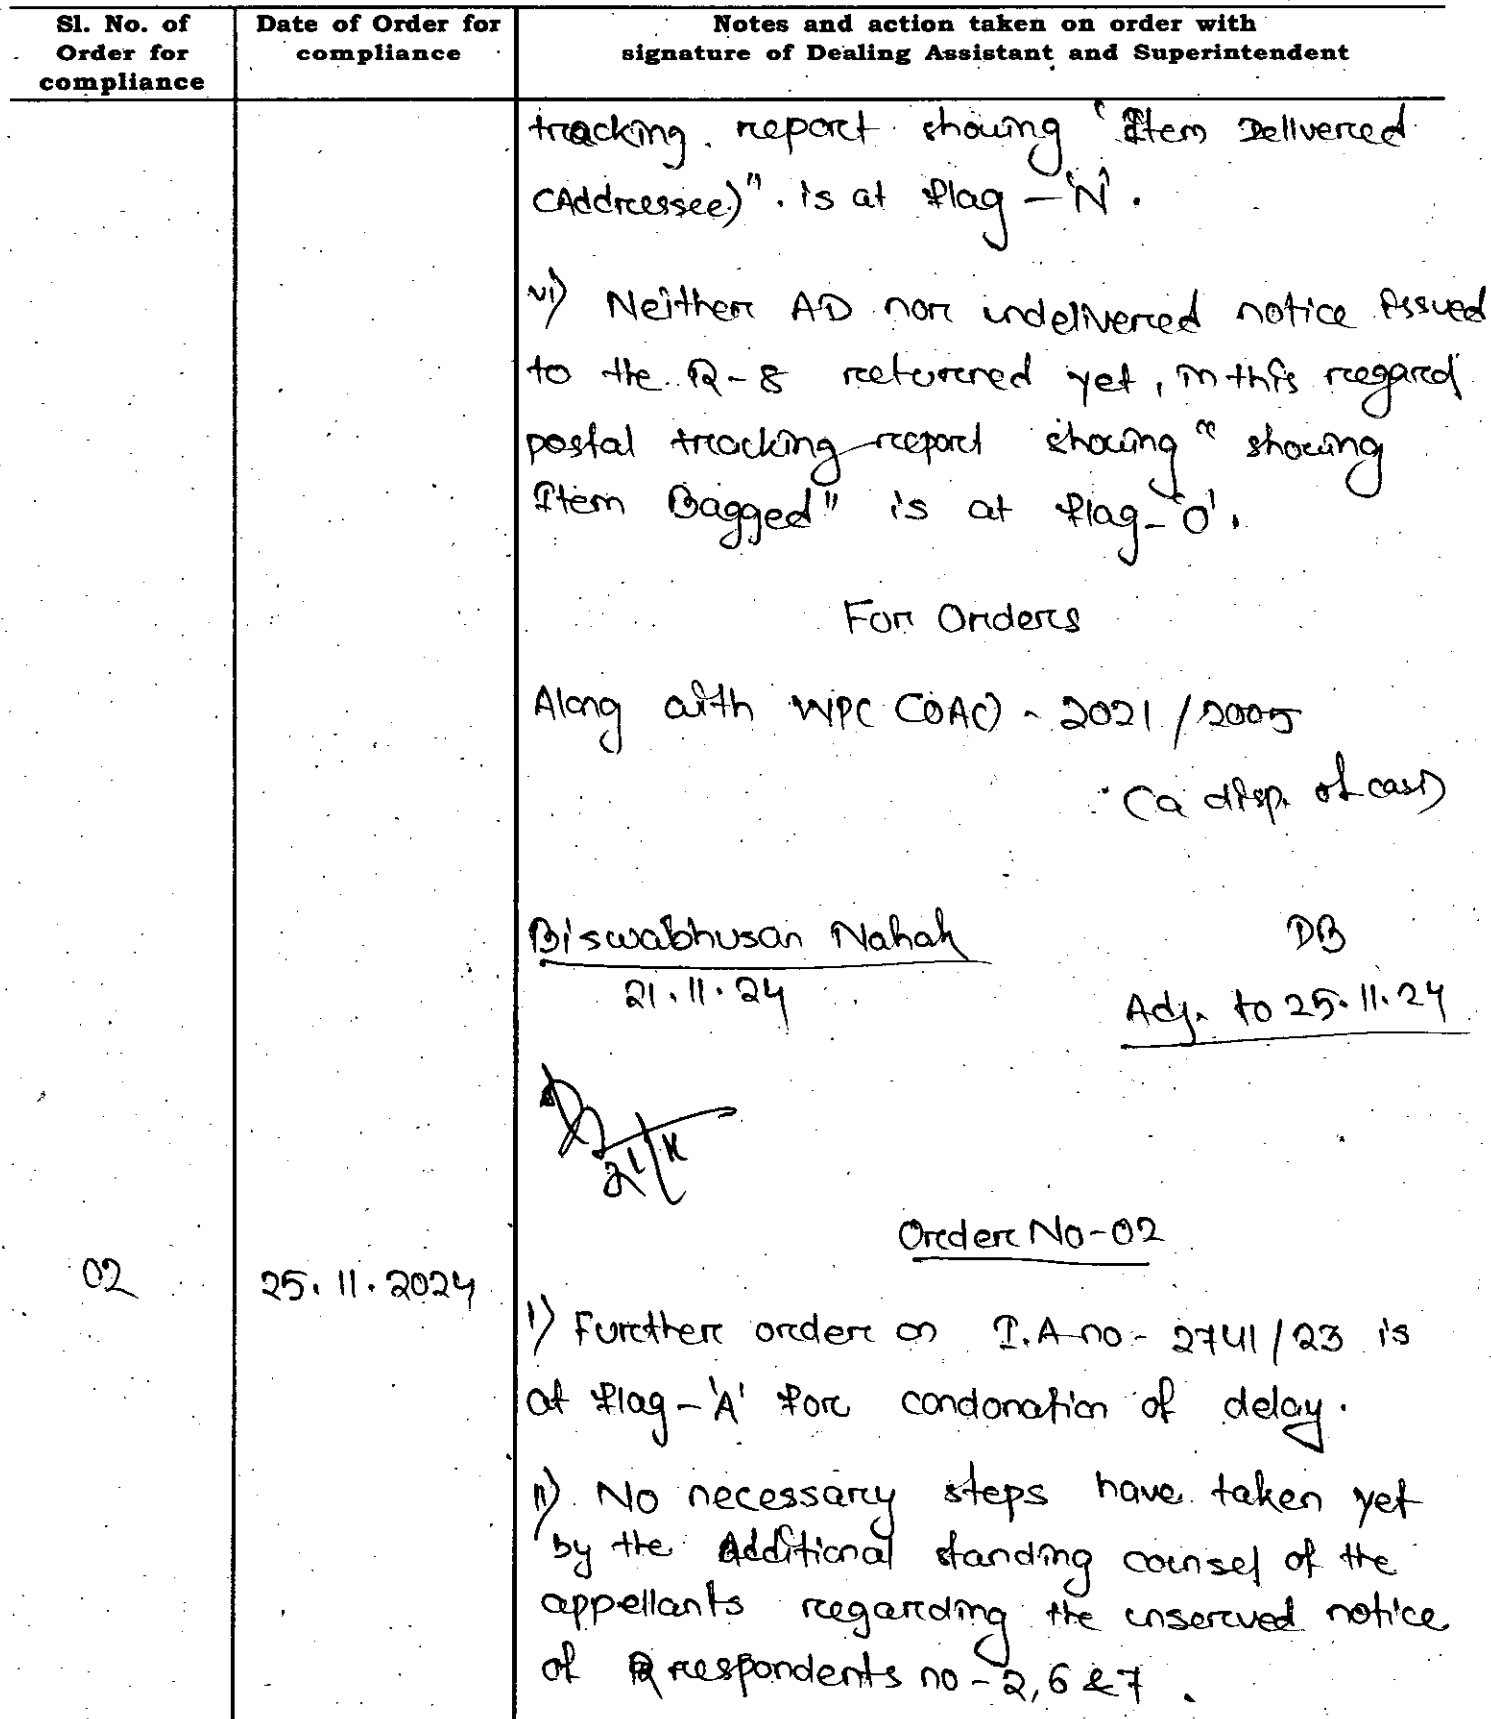 Sl. No. of Order for compliance
Date of Order for compliance
Notes and action taken on order with signature of Dealing Assistant and Superintendent
tracking report showing "Item Delivered
(Addressee)". is at flag - 'N'.
vi) Neither AD nor undelivered notice issued
to the R-8 returned yet, in this regard
postal tracking report showing " showing
Item Bagged" is at flag- 'O'.
For Orders
Along with WPC (OAC) - 2021 / 2005
(a disp. of case)
Biswabhusan Nahak
21.11.24
DB
Adj. to 25.11.24
21/11
Order No-02
02
25.11.2024
i) Further order on I.A no - 2741/23 is
at flag - 'A' for condonation of delay.
ii) No necessary steps have taken yet
by the Additional standing counsel of the
appellants regarding the unserved notice
of respondents no - 2, 6 & 7.